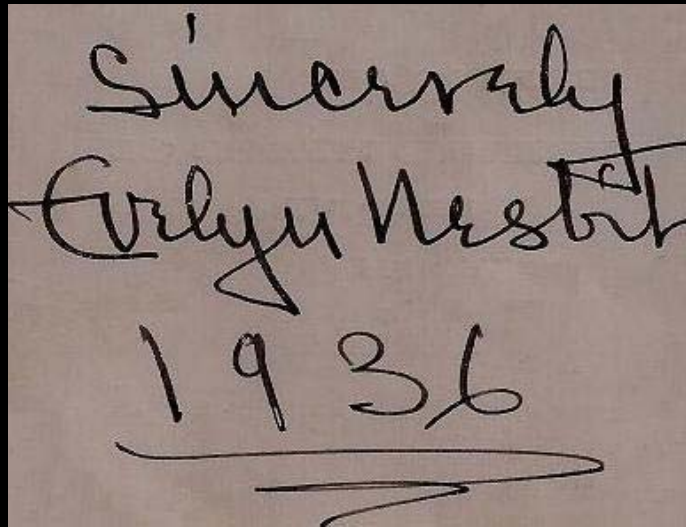 Sincerely
Evelyn Nesbit
1936